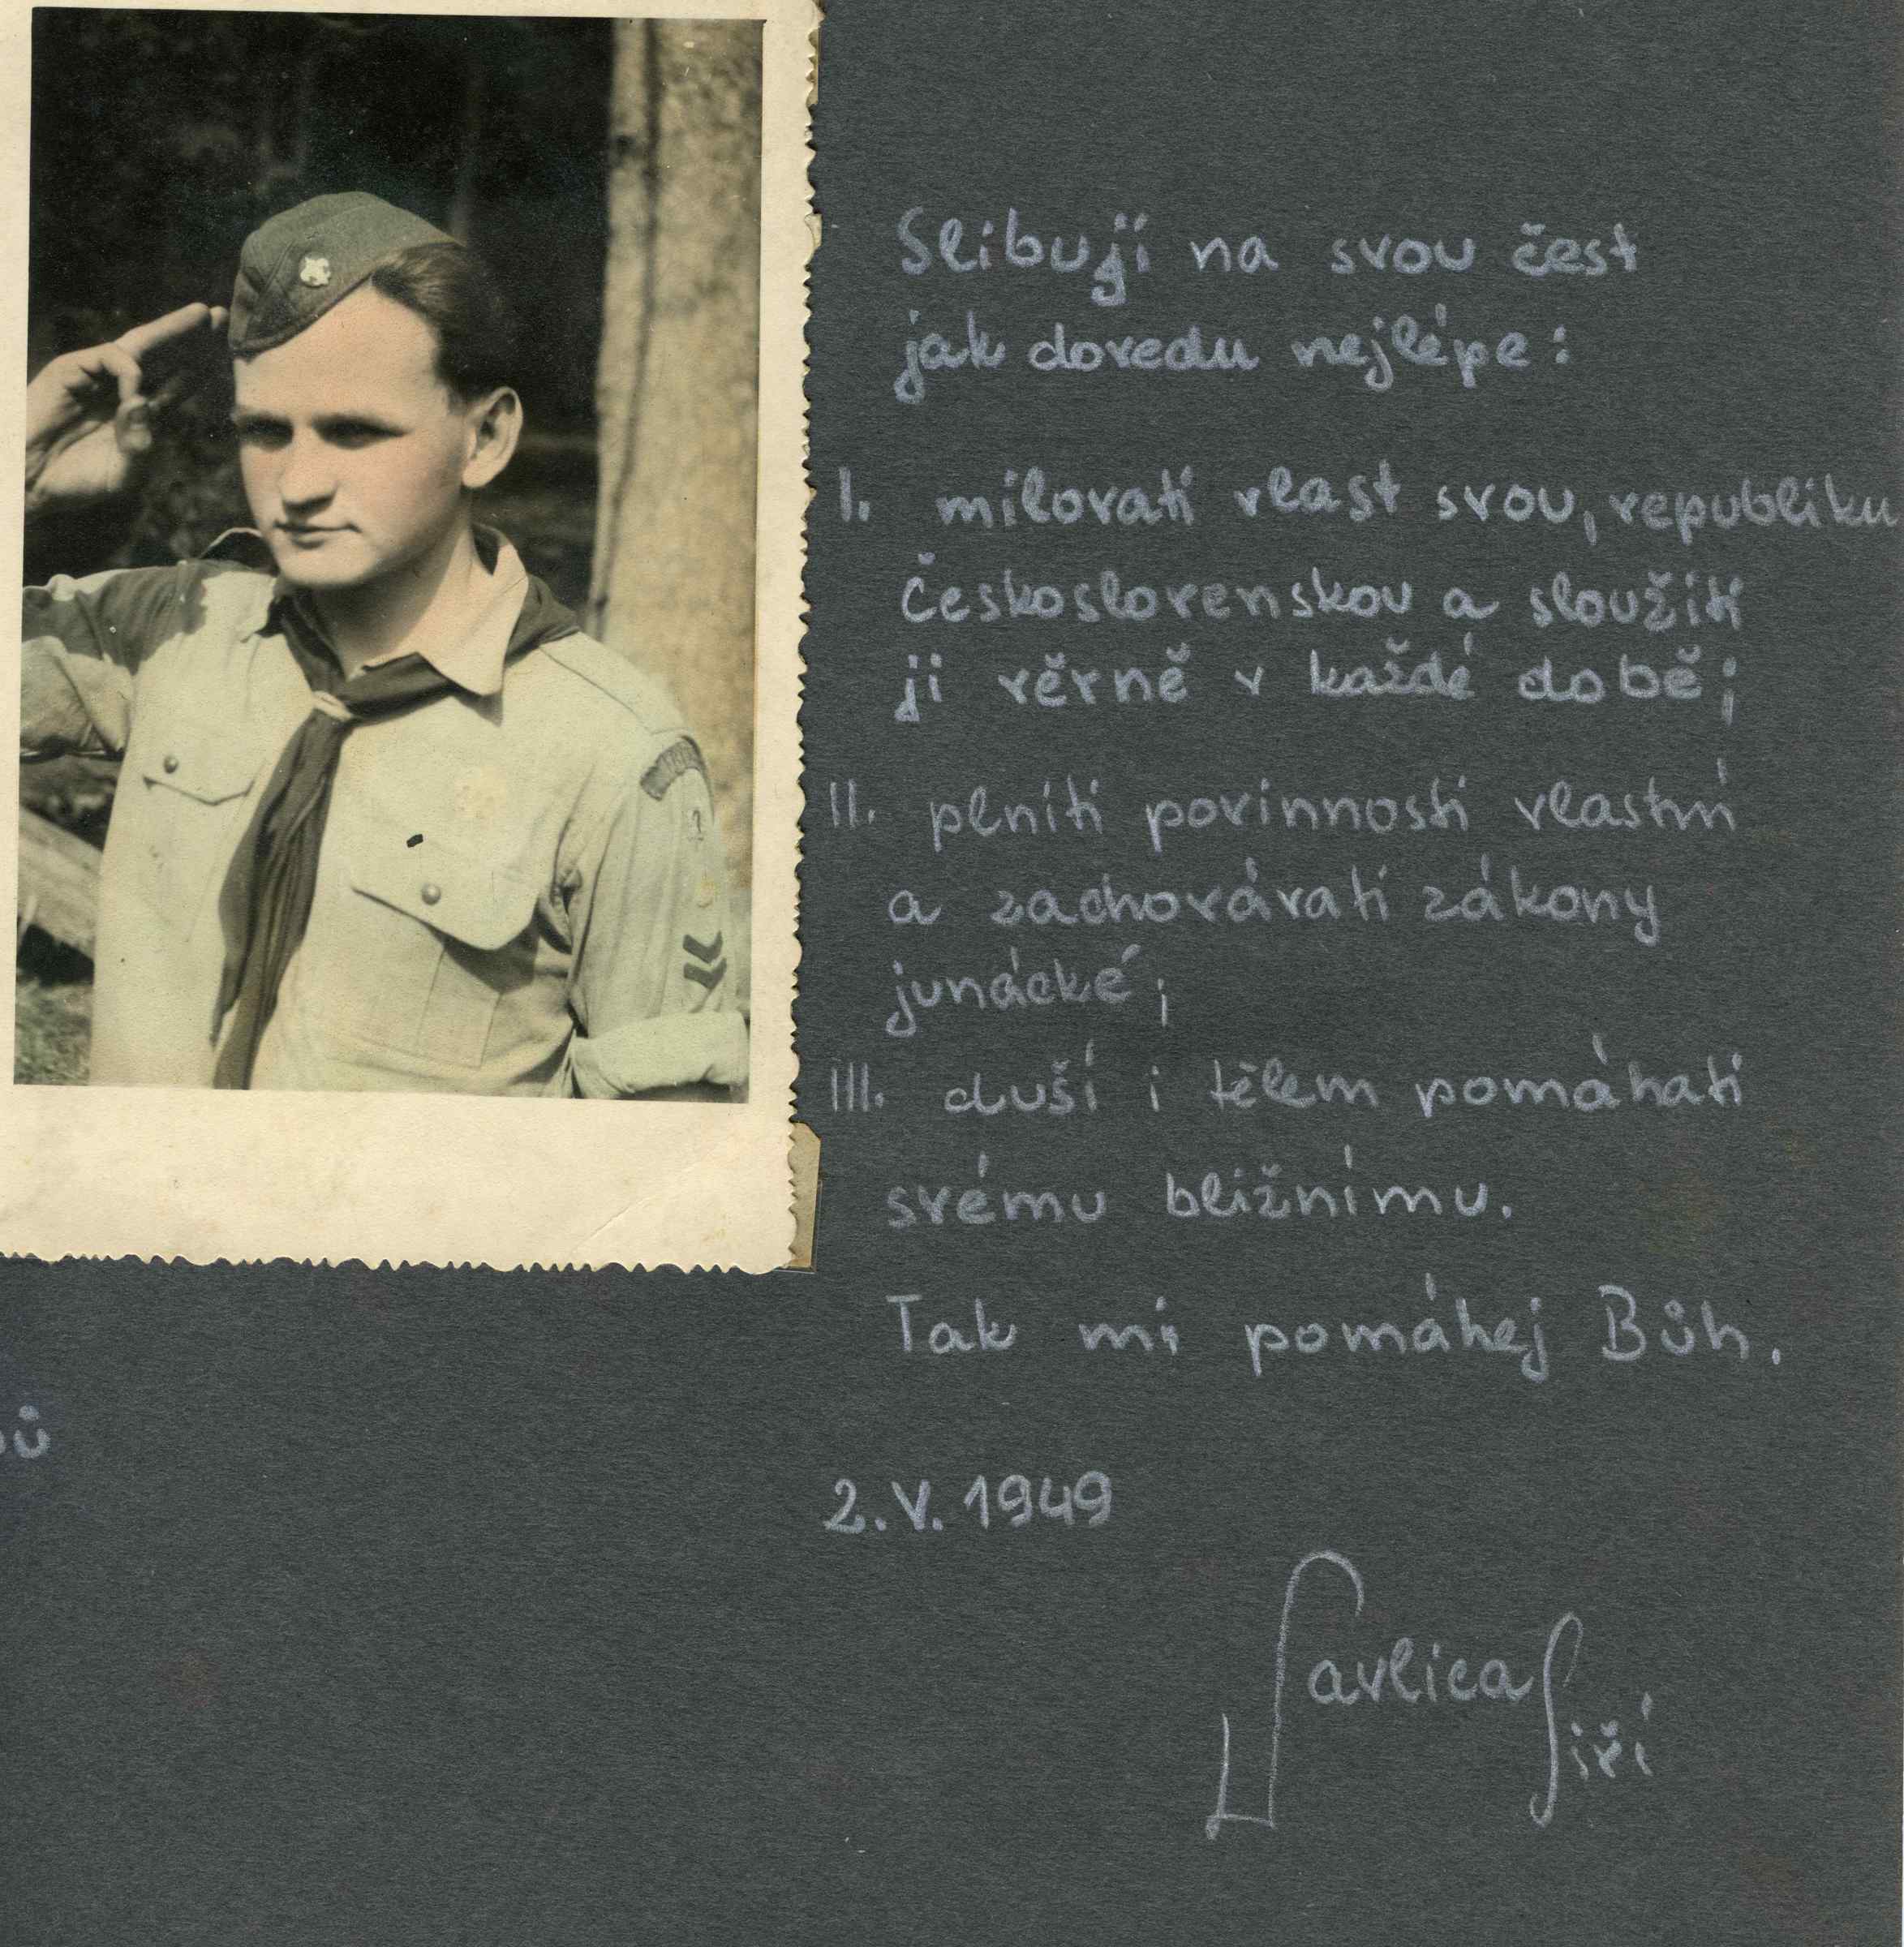 Slibuji na svou čest
jak dovedu nejlépe:
I. milovati vlast svou, republiku
Československou a sloužiti
ji věrně v každé době;
II. plniti povinnosti vlastní
a zachovávati zákony
junácké;
III. duší i tělem pomáhati
svému bližnímu.
Tak mi pomáhej Bůh.
2.V.1949
Pavlica Jiří